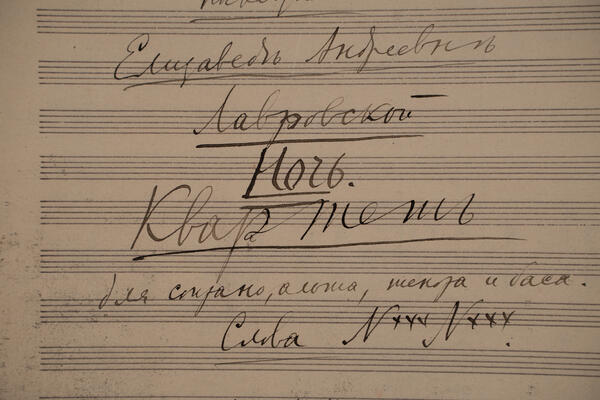 Елизаветѣ Андреевнѣ
Лавровской
Ночь.
Квартетъ
для сопрано, альта, тенора и баса.
Слова Nxxx Nxxx.